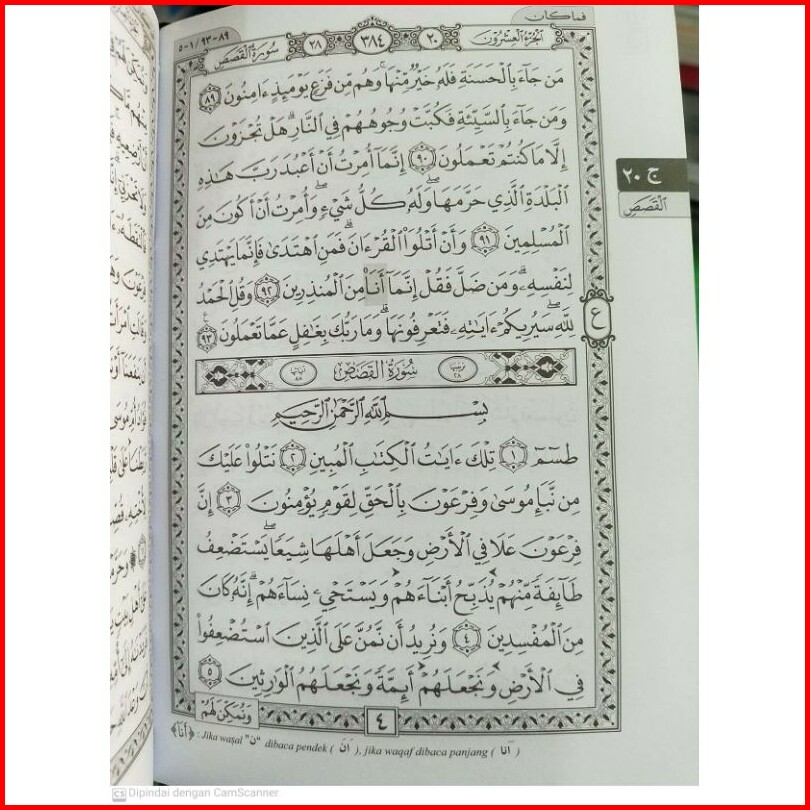 فما كان
٨٩-٩٣/١-٥ سُورَةُ القَصَصِ ٢٨ ٣٨٤ ٢٠ الجُزْءُ العِشْرُونَ
مَن جَآءَ بِالْحَسَنَةِ فَلَهُۥ خَيْرٌ مِّنْهَا وَهُم مِّن فَزَعٍ يَوْمَئِذٍ ءَامِنُونَ ٨٩
وَمَن جَآءَ بِالسَّيِّئَةِ فَكُبَّتْ وُجُوهُهُمْ فِي النَّارِ هَلْ تُجْزَوْنَ
إِلَّا مَا كُنتُمْ تَعْمَلُونَ ٩٠ إِنَّمَآ أُمِرْتُ أَنْ أَعْبُدَ رَبَّ هَٰذِهِ
الْبَلْدَةِ الَّذِي حَرَّمَهَا وَلَهُۥ كُلُّ شَيْءٍ ۖ وَأُمِرْتُ أَنْ أَكُونَ مِنَ
الْمُسْلِمِينَ ٩١ وَأَنْ أَتْلُوَا۟ الْقُرْءَانَ ۖ فَمَنِ اهْتَدَىٰ فَإِنَّمَا يَهْتَدِي
لِنَفْسِهِۦ ۖ وَمَن ضَلَّ فَقُلْ إِنَّمَآ أَنَا۠ مِنَ الْمُنذِرِينَ ٩٢ وَقُلِ الْحَمْدُ
لِلَّهِ سَيُرِيكُمْ ءَايَٰتِهِۦ فَتَعْرِفُونَهَا ۚ وَمَا رَبُّكَ بِغَٰفِلٍ عَمَّا تَعْمَلُونَ ٩٣
سُورَةُ القَصَصِ
بِسْمِ اللَّهِ الرَّحْمَٰنِ الرَّحِيمِ
طسٓمٓ ١ تِلْكَ ءَايَٰتُ الْكِتَٰبِ الْمُبِينِ ٢ نَتْلُوا۟ عَلَيْكَ
مِن نَّبَإِ مُوسَىٰ وَفِرْعَوْنَ بِالْحَقِّ لِقَوْمٍ يُؤْمِنُونَ ٣ إِنَّ
فِرْعَوْنَ عَلَا فِي الْأَرْضِ وَجَعَلَ أَهْلَهَا شِيَعًا يَسْتَضْعِفُ
طَآئِفَةً مِّنْهُمْ يُذَبِّحُ أَبْنَآءَهُمْ وَيَسْتَحْيِۦ نِسَآءَهُمْ ۚ إِنَّهُۥ كَانَ
مِنَ الْمُفْسِدِينَ ٤ وَنُرِيدُ أَن نَّمُنَّ عَلَى الَّذِينَ اسْتُضْعِفُوا۟
فِي الْأَرْضِ وَنَجْعَلَهُمْ أَئِمَّةً وَنَجْعَلَهُمُ الْوَٰرِثِينَ ٥
وَنُمَكِّنَ لَهُمْ
٤
ج ٢٠
القَصَصِ
ع
﴿أَنَا۠﴾ : Jika waṣal "ن" dibaca pendek ( أَنَ ), jika waqaf dibaca panjang ( أَنَا )
CS Dipindai dengan CamScanner